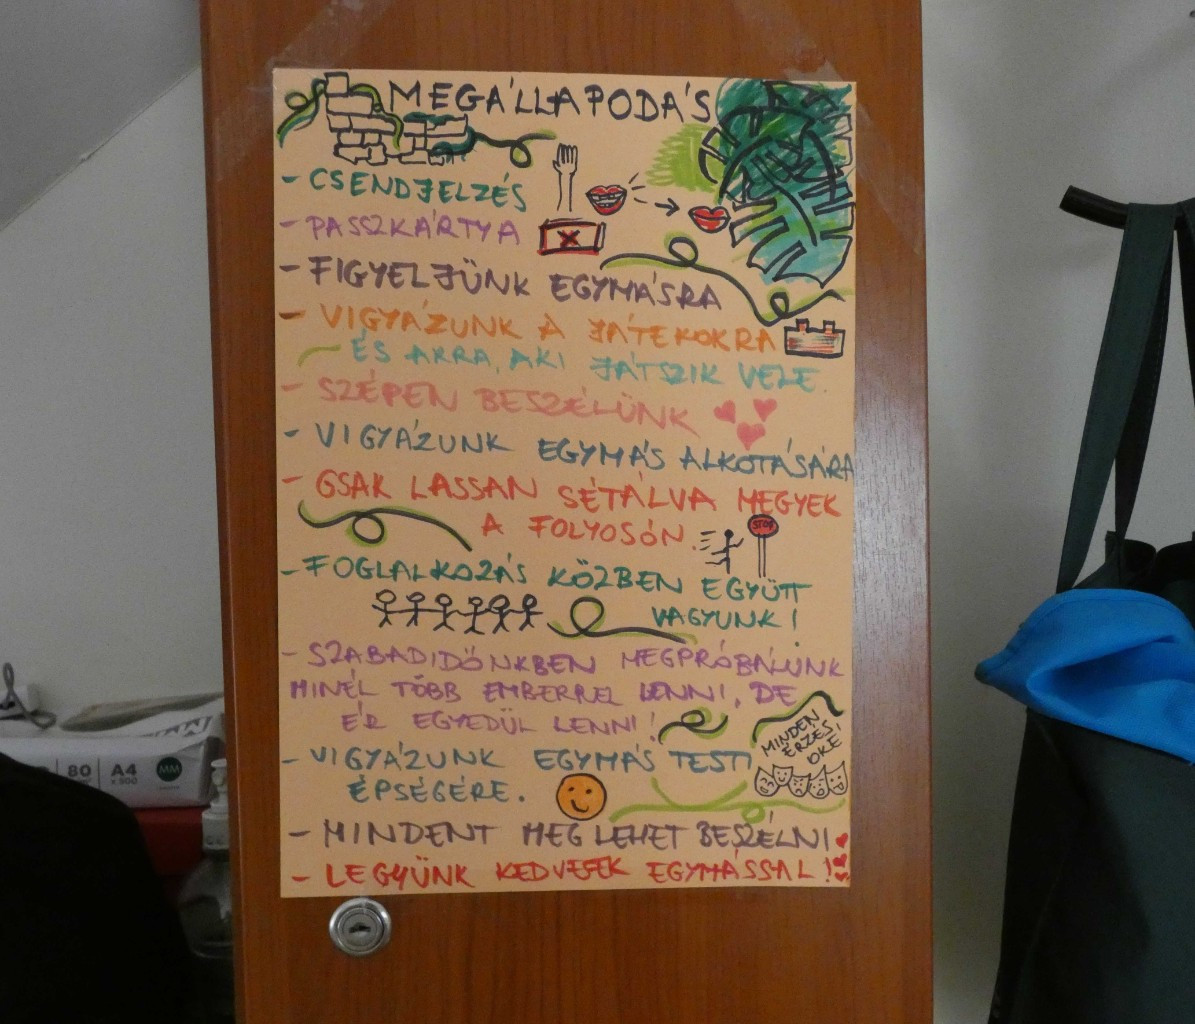 MEGÁLLAPODÁS
- CSENDJELZÉS
- PASSZKÁRTYA
- FIGYELJÜNK EGYMÁSRA
- VIGYÁZUNK A JÁTÉKOKRA
ÉS ARRA, AKI JÁTSZIK VELE.
- SZÉPEN BESZÉLÜNK
- VIGYÁZUNK EGYMÁS ALKOTÁSÁRA
- CSAK LASSAN SÉTÁLVA MEGYEK
A FOLYOSÓN.
STOP
- FOGLALKOZÁS KÖZBEN EGYÜTT
VAGYUNK!
- SZABADIDŐNKBEN MEGPRÓBÁLUNK
MINÉL TÖBB EMBERREL LENNI, DE
ÉR EGYEDÜL LENNI!
MINDEN
ÉRZÉS
OKÉ!
- VIGYÁZUNK EGYMÁS TESTI
ÉPSÉGÉRE.
- MINDENT MEG LEHET BESZÉLNI
- LEGYÜNK KEDVESEK EGYMÁSSAL!
80
A4
x500
MM